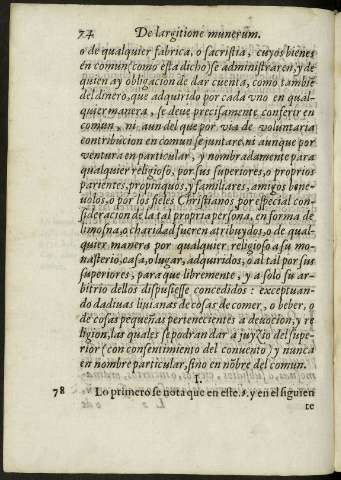 74 De largitione munerum.
o de qualquier fabrica, o sacristia, cuyos bienes
en comun (como esta dicho) se administraren, y de
quien ay obligacion de dar cuenta, como tambiẽ
del dinero, que adquirido por cada vno en qual-
quier manera, se deue precisamente conferir en
comun, ni aun del que por via de voluntaria
contribucion en comun se juntare, ni aunque por
ventura en particular, y nombradamente para
qualquier religioso, por sus superiores, o proprios
parientes, propinquos, y familiares, amigos bene-
uolos, o por los fieles Christianos por especial con-
sideracion de la tal propria persona, en forma de
limosna, o charidad fueren atribuydos, o de qual-
quier manera por qualquier religioso a su mo-
nasterio, casa, o lugar, adquiridos, o al tal por sus
superiores, para que libremente, y a solo su ar-
bitrio dellos dispusiesse concedidos: exceptuan-
do dadiuas liuianas de cosas de comer, o beber, o
de cosas pequeñas pertenecientes a deuocion, y re
ligion, las quales se podran dar a juyzio del supe-
rior (con consentimiento del conuento) y nunca
en nombre particular, sino en nõbre del comun.
I.
78 Lo primero se nota que en este. §. y en el siguien
te